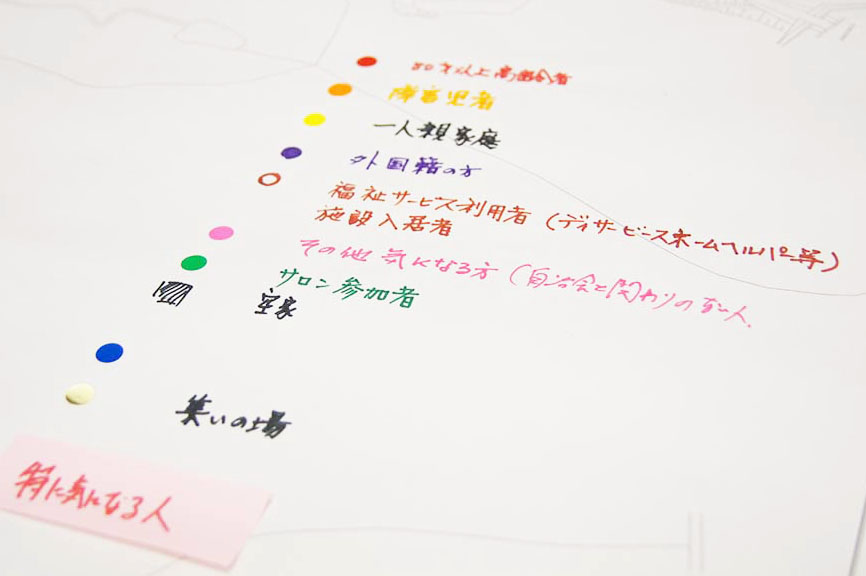 80才以上高齢者
障害児者
一人親家庭
外国籍の方
福祉サービス利用者(デイサービスホームヘルパー等)
施設入居者
その他気になる方(自治会と関わりのない人
サロン参加者
空家
集いの場
特に気になる人